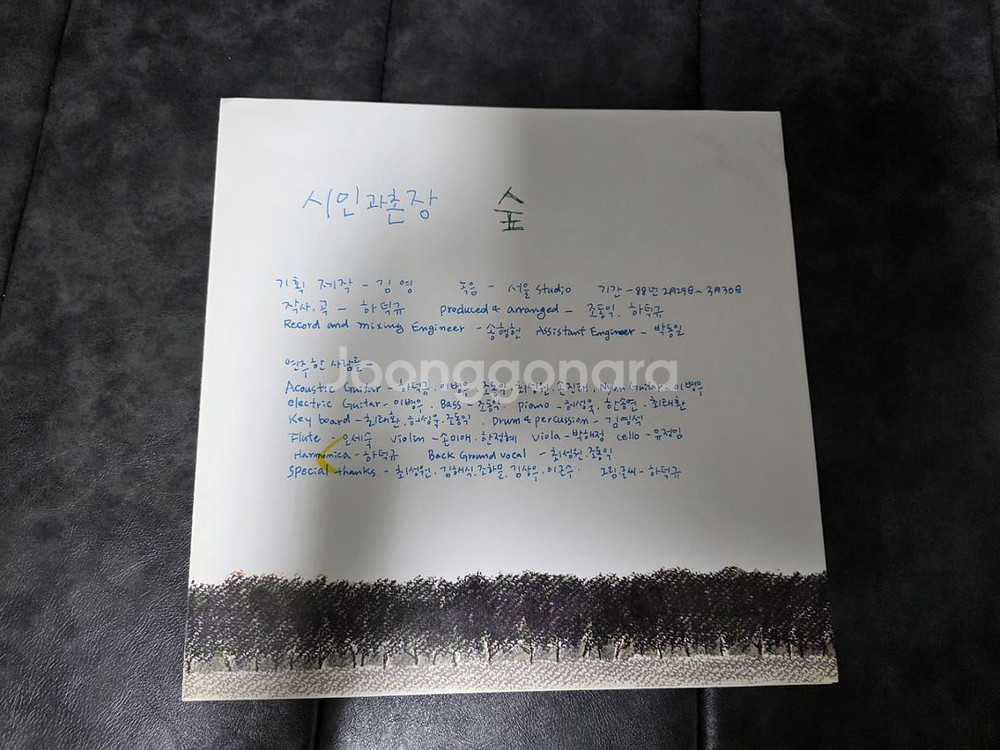 시인과촌장 숲
기획 제작 - 김영 녹음 - 서울 studio 기간 - 88년 2月29日~ 3月30日
작사.곡 - 하덕규 produced & arranged - 조동익, 하덕규
Record and mixing Engineer - 송형헌 Assistant Engineer - 박동일
연주한 사람들 -
Joonggonara
Acoustic Guitar - 하덕규. 이병우. 조동익. 최성원. 손진태. Nylon Guitar - 이병우
electric Guitar - 이병우. Bass - 조동익 piano - 허성욱, 한송연. 최태완
Key board - 최태완, 허성욱, 조동익. Drum & percussion - 김영석
Flute - 인세숙 violin - 손미애. 한정혜 viola - 박혜정 cello - 유정임
Harmonica - 하덕규 Back Ground vocal - 최성원, 조동익
Special thanks - 최성원. 김해식. 조하문. 김상우. 이근수. 그림.글씨 - 하덕규